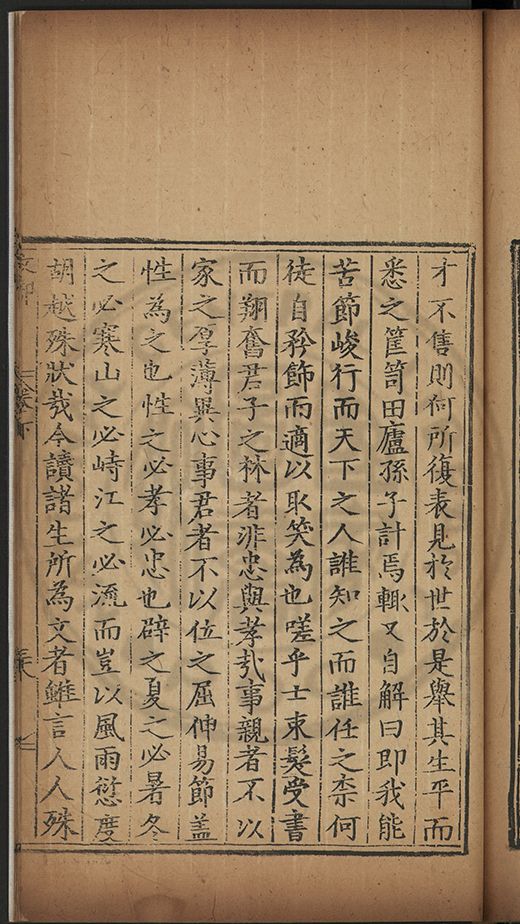 才不售則何所復表見於世於是舉其生平而
悉之筐笥田廬孫子計焉輙又自解曰即我能
苦節峻行而天下之人誰知之而誰任之柰何
徒自矜飾而適以取笑為也嗟乎士束髮受書
而翔奮君子之林者非忠與孝㢤事親者不以
家之厚薄異心事君者不以位之屈伸易節盖
性為之也性之必孝必忠也辟之夏之必暑冬
之必寒山之必峙江之必流而豈以風雨愆度
胡越殊狀哉今讀諸生所為文者雖言人人殊